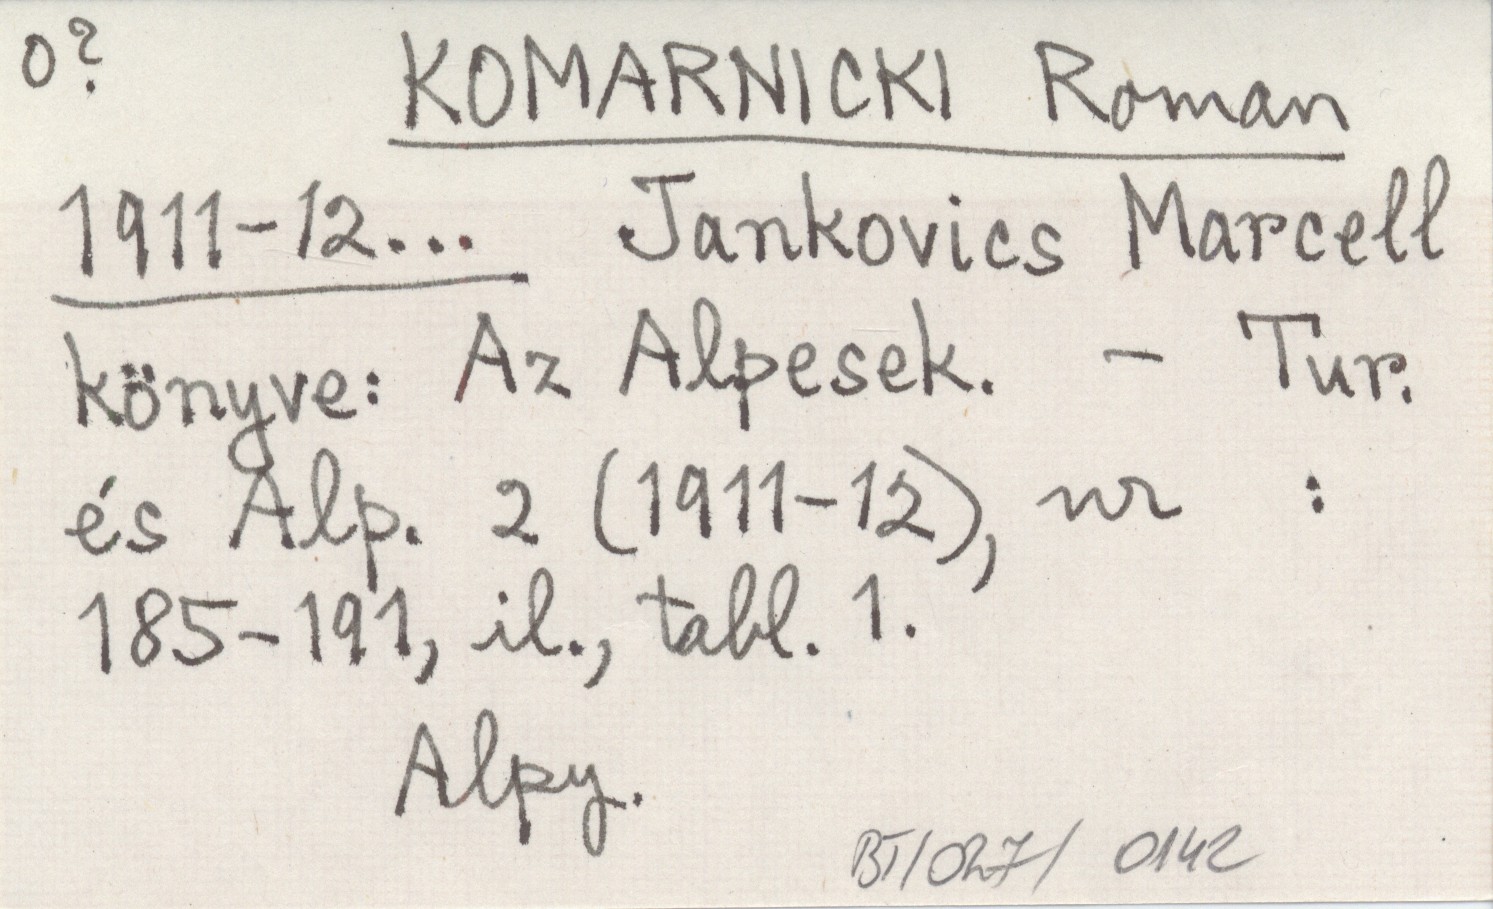 o? KOMARNICKI Roman
1911-12... Jankovics Marcell
könyve: Az Alpesek. - Tur.
és Alp. 2 (1911-12), nr :
185-191, il., tabl. 1.
Alpy.
BT/027/ 0142